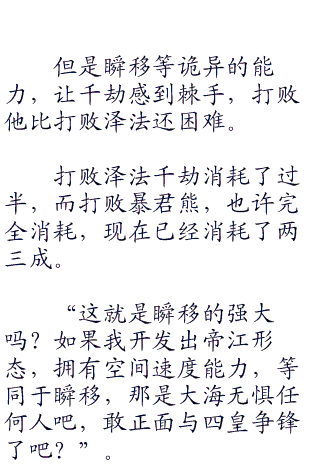 但是瞬移等诡异的能
力，让千劫感到棘手，打败
他比打败泽法还困难。
打败泽法千劫消耗了过
半，而打败暴君熊，也许完
全消耗，现在已经消耗了两
三成。
“这就是瞬移的强大
吗？如果我开发出帝江形
态，拥有空间速度能力，等
同于瞬移，那是大海无惧任
何人吧，敢正面与四皇争锋
了吧？”。